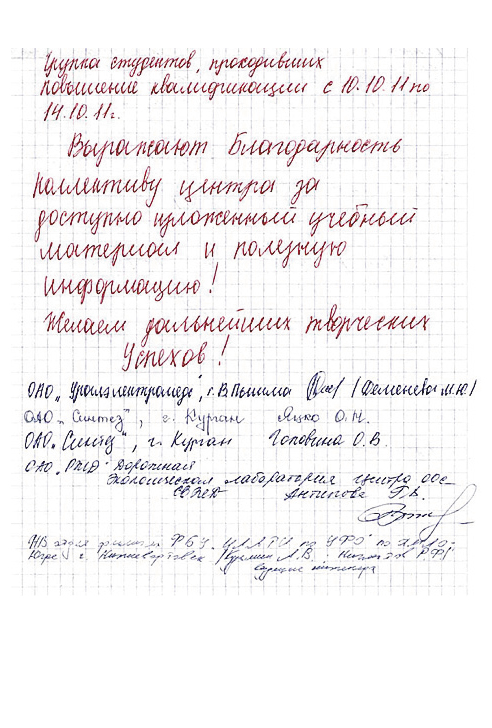 Группа студентов, проходивших
повышение квалификации с 10.10.11 по
14.10.11г.
Выражают благодарность
коллективу центра за
доступно изложенный учебный
материал и полезную
информацию!
Желаем дальнейших творческих
Успехов!
ОАО „Уралэлектромедь", г. В Пышма /Феменева М.Ю/
ОАО „Синтез", г. Курган Яцко О.Н.
ОАО „Синтез", г. Курган Головина О.В.
ОАО „РЖД" Дорожная
Экологическая лаборатория центра оос
СвЖД Антипова Г.В.
филиал ФБУ ЦЛАТИ по УФО по ХМАО-
Югре г. Нижневартовск
инженера